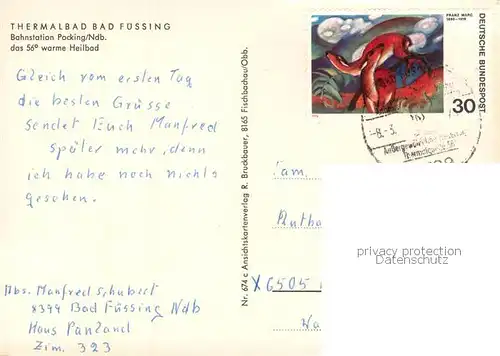 THERMALBAD BAD FÜSSING
Bahnstation Pocking/Ndb.
das 56° warme Heilbad
Gleich vom ersten Tag
die besten Grüsse
sendet Euch Manfred
später mehr, denn
ich habe noch nichts
gesehen.
Abs. Manfred Schubert
8399 Bad Füssing Ndb
Haus Panland
Zim. 323
Nr. 674 c Ansichtskartenverlag R. Bruckbauer, 8165 Fischbachau/Obb.
FRANZ MARC
1880-1916
DEUTSCHE BUNDESPOST
30
-8.-3.
Thermalquelle 56°
Fam.
X 6505
privacy protection
Datenschutz